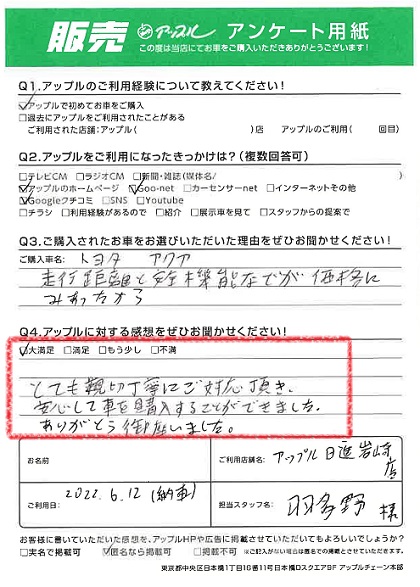 販売 アップル アンケート用紙
この度は当店にてお車をご購入いただきありがとうございます!
Q1.アップルのご利用経験について教えてください!
☑アップルで初めてお車をご購入
□過去にアップルをご利用されたことがある
ご利用された店舗:アップル( )店 アップルのご利用( 回目)
Q2.アップルをご利用になったきっかけは?(複数回答可)
□テレビCM □ラジオCM □新聞・雑誌(媒体名/ )
☑アップルのホームページ ☑Goo-net □カーセンサーnet □インターネットその他
☑Googleクチコミ □SNS □Youtube
□チラシ □利用経験があるので □紹介 □展示車を見て □スタッフからの提案で
Q3.ご購入されたお車をお選びいただいた理由をぜひお聞かせください!
ご購入車名: トヨタ アクア
走行距離と安全機能などが価格に
みあったから
Q4.アップルに対する感想をぜひお聞かせください!
☑大満足 □満足 □もう少し □不満
とても親切丁寧にご対応頂き、
安心して車を購入することができました。
ありがとう御座いました。
お名前
ご利用店舗名: アップル日進岩崎店
ご利用日: 2022.6.12(納車)
担当スタッフ名: 羽多野 様
お客様に書いていただいた感想を、アップルHPや広告に掲載させていただいてもよろしいでしょうか?
□実名で掲載可 ☑匿名なら掲載可 □掲載不可 ※ご記入がない場合は匿名での掲載とさせていただきます。
東京都中央区日本橋1丁目16番11号日本橋Dスクエア9F アップルチェーン本部